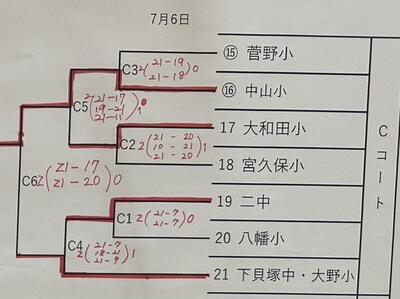 7月6日
⑮ 菅野小
C3 2(21-19 21-18)0
⑯ 中山小
C5 2(21-17 19-21 21-11)1
17 大和田小
C2 2(21-20 10-21 21-20)1
18 宮久保小
C6 2(21-17 21-20)0
19 二中
C1 2(21-7 21-7)0
20 八幡小
C4 2(21-7 18-21 21-9)1
21 下貝塚中・大野小
Cコート